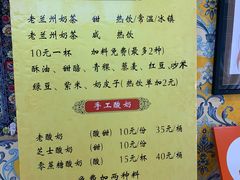 老兰州奶茶 甜 热饮/常温/冰镇
老兰州奶茶 咸 热饮
10元一杯 加料免费(最多2种)
酥油、甜醅、青稞、藜麦、红豆、炒米
绿豆、紫米、奶皮子(热饮单加2元)
手工酸奶
老酸奶 (酸甜) 10元/份 35元/桶
芝士酸奶 10元/份
零蔗糖酸奶 (酸) 15元/杯 40元/桶
免费加两种料